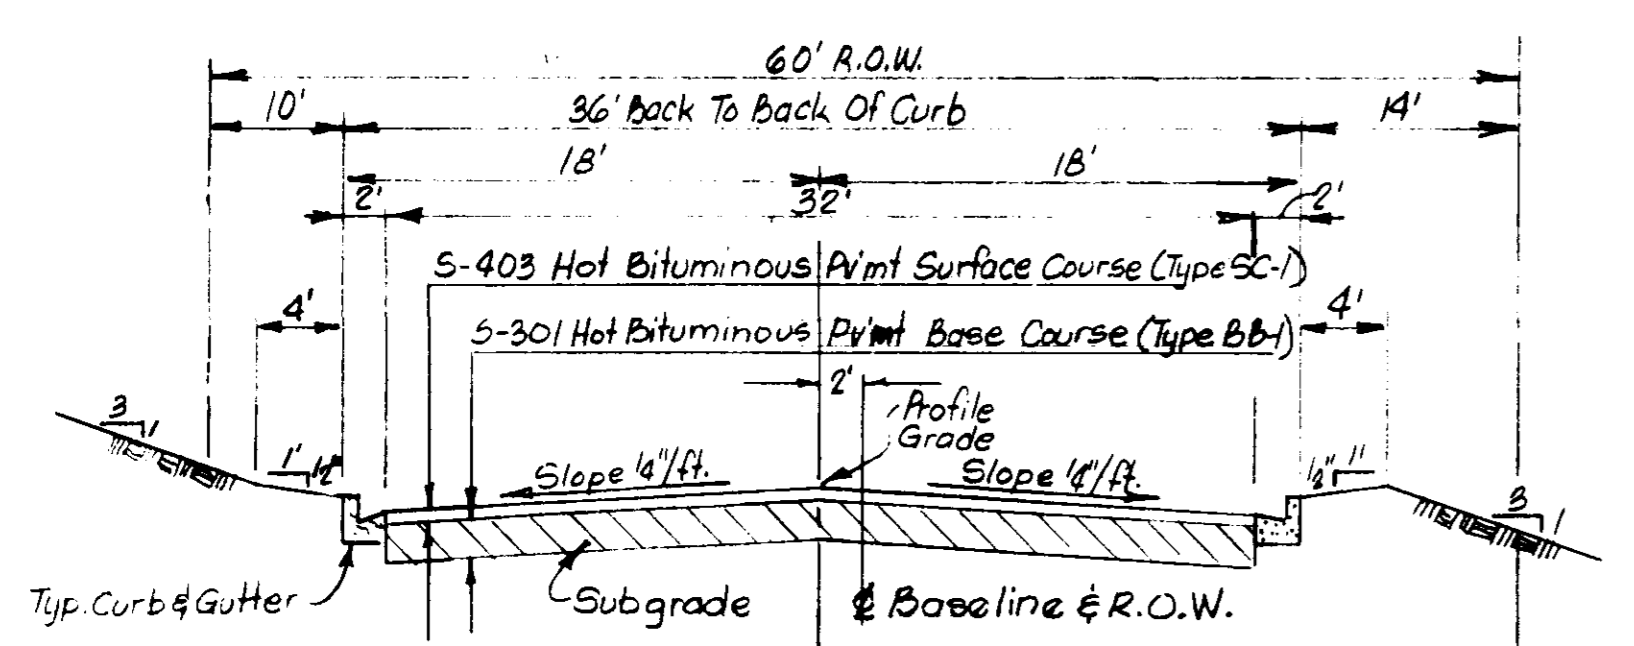 60' R.O.W.
10' 36' Back To Back Of Curb 14'
18' 18'
2' 32' 2'
S-403 Hot Bituminous Pv'mt Surface Course (Type SC-1)
4' 4'
S-301 Hot Bituminous Pv'mt Base Course (Type BB-1)
2'
Profile
Grade
3 1
1' 1/2" Slope 1/4"/ft. Slope 1/4"/ft. 1/2" 1'
3 1
Typ. Curb & Gutter Subgrade ℄ Baseline & R.O.W.